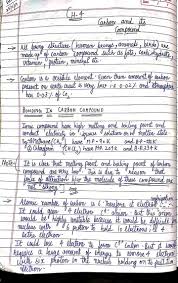 CH-4
Carbon and its
Compound
All living structure (human beings, animals, birds) are
made up of carbon compound such as fats, carbohydrate
vitamins, protein, mineral etc
Carbon is a versatile element. Even then amount of carbon
present on earth crust is very less i.e 0.02% and atmosphere
has 0.03% of CO2
BONDING IN CARBON COMPOUND
Ionic compound have high melting and boiling point and
conduct electricity in solution or in molten state
Note:- It is clear that melting and boiling point of carbon
compound are very low. This is due to reason that
force of attraction b/w the molecule of these compound are
not strong
Atomic number of carbon is 6
It could gain 4 electron
would be highly unstable because it would be difficult for
nucleus with 6 proton to hold 10 electrons
extra electron
It could lose 4 electron to form C4+ cation. But it would
require a large amount of energy to remove 4 electron
with six proton in the nucleus holding on to just two
electron